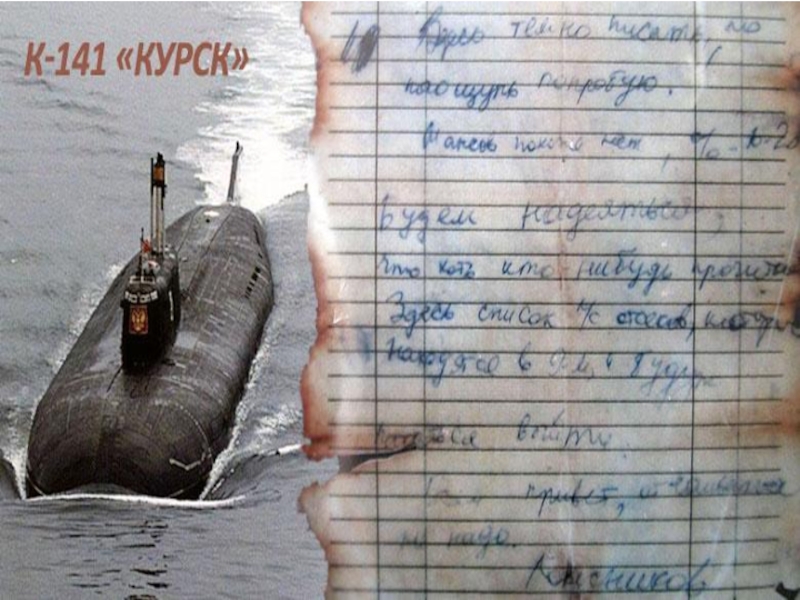 К-141 «КУРСК»
Здесь темно писать, но
наощупь попробую.
Шансов похоже нет, % 10-20
Будем надеяться,
что хоть кто-нибудь прочитает
Здесь список л/с отсеков, которые
находятся в 9-м и будут
выйти.
привет, отчаиваться
не надо.
Колесников